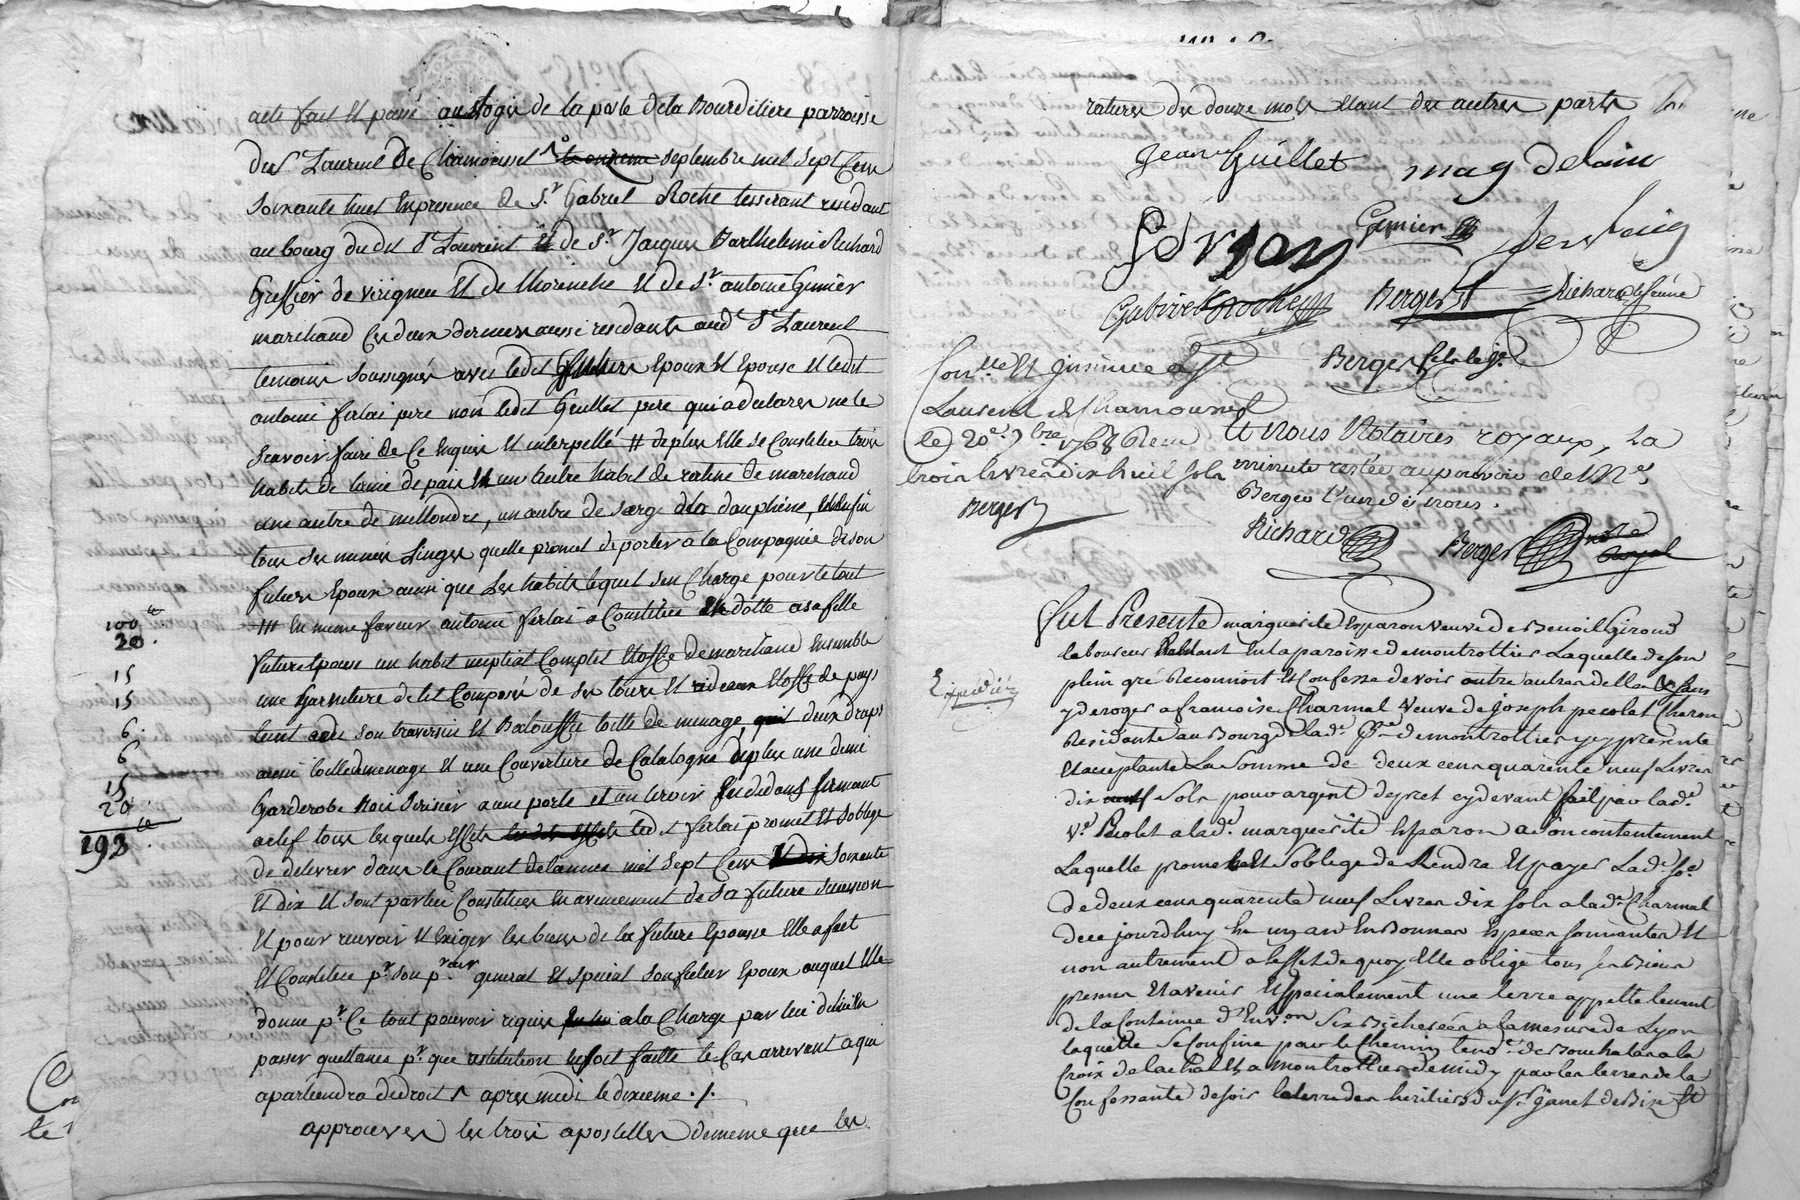 acte fait et passé au logis de la poste de la Bourdeliere parroisse
du St Laurent de Chamousset septembre mil sept cens
soixante huit en presence de Sr. Gabriel Roche tisserant residant
au bourg du dit St Laurent et de Sr. Jacques Barthelemi Richard
Greffier de et de et de Sr. antoine Gimier
marchand ces deux derniers aussi residants aud. St Laurent
temoins soussignés avec ledit futurs epoux et epouse et ledit
antoine ferlai pere non ledit Guillet pere qui a declarer ne le
scavoir faire de ce enquis et interpellé # de plus elle se constitue trois
habits de un autre habit de ratine de marchand
une autre de un autre de serge d la dauphine, et enfin
tous ses menus linges quelle promet de porter a la compagnie de son
futur epoux ainsi que ses habits lequel sen charge pour le tout
# en meme faveur antoine ferlai a constitué en dotte a sa fille
100
20
future epouse un habit nuptial complet etoffe de marchand ensemble
15
une garniture de lit composée de ses tours et rideaux etoffe de pays
15
son traversin et toille de menage deux draps
6
aussi toille de menage et une couverture de Catalogne de plus une demi
6
15
Garderobe bois serisier a une porte et un tiroir en dedans fermant
20
a clef tous lesquels effets ledit ferlai promet et soblige
193
de delivrer dans le courant de lannée mil sept cens soixante
et dix et sont par lui constitués en avencement de sa future succession
et pour recevoir et exiger les biens de la future epouse elle a fait
et constitué pr. son pr. general et special son futur epoux auquel elle
donne pr. ce tout pouvoir requis a la charge par lui de
passer quittances pr. que restitution en soit faitte le cas arrivant a qui
apartiendra de droit ^ apres midi le dixieme ./.
approuver les trois apostilles de meme que les
ratures des douze mots etant des autres parts
Jean Guillet mag delain
Gimier
Gabriel Roche Berger Richard le jeune
Con.lle et insinué a St Berger fils le je
Laurent de Chamousset
le 20e. 7bre 1768 Recu
trois livres dix huit sols
Berger
Et nous Notaires royaux, La
minute restée au pouvoir de Me
Berger l'un de nous.
Richard Berger nore
Royal
Expedié
Fut Presente marguerite Esparon veuve de Benoit Giroud
laboureur habitant en la paroisse de montrottier laquelle de son
plein gré Reconnoit et Confesse devoir outre autres dettes et sans
y deroger a francoise Charmal veuve de joseph pecolet Charon
Residante au Bourg de lade. Pse. de montrottier icy presente
et acceptante La somme de deux cens quarente neuf livres
dix sols pour argent de pret cy devant fait par lade.
Ve. Pecolet a lade. marguerite Esparon a son contentement
Laquelle promet et soblige de Rendre et payer lade. so.e
de deux cens quarente neuf livres dix sols a lade. Charmal
de ce jourdhuy en un an en Bonnes Especes sonnantes et
non autrement a leffet de quoy elle oblige tous ses Biens
presens et avenir et specialement une terre appellé
de la Contenue d'Env.on six Bicherées a la mesure de Lyon
laquelle se confine par le chemin tend.t de a la
croix de la a montrottier de midy par les terres de la
Confessante de soir la terre des héritiers du Sr. Ganet de Bise et